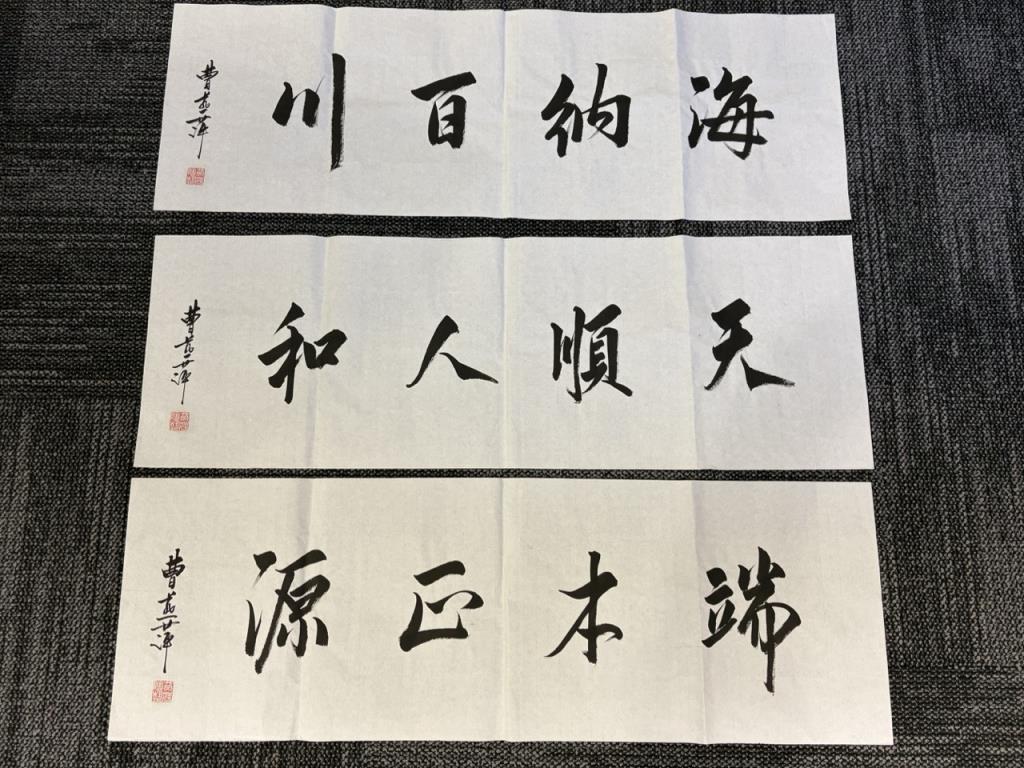 海納百川
曹 萍
天順人和
曹 萍
端木正源
曹 萍